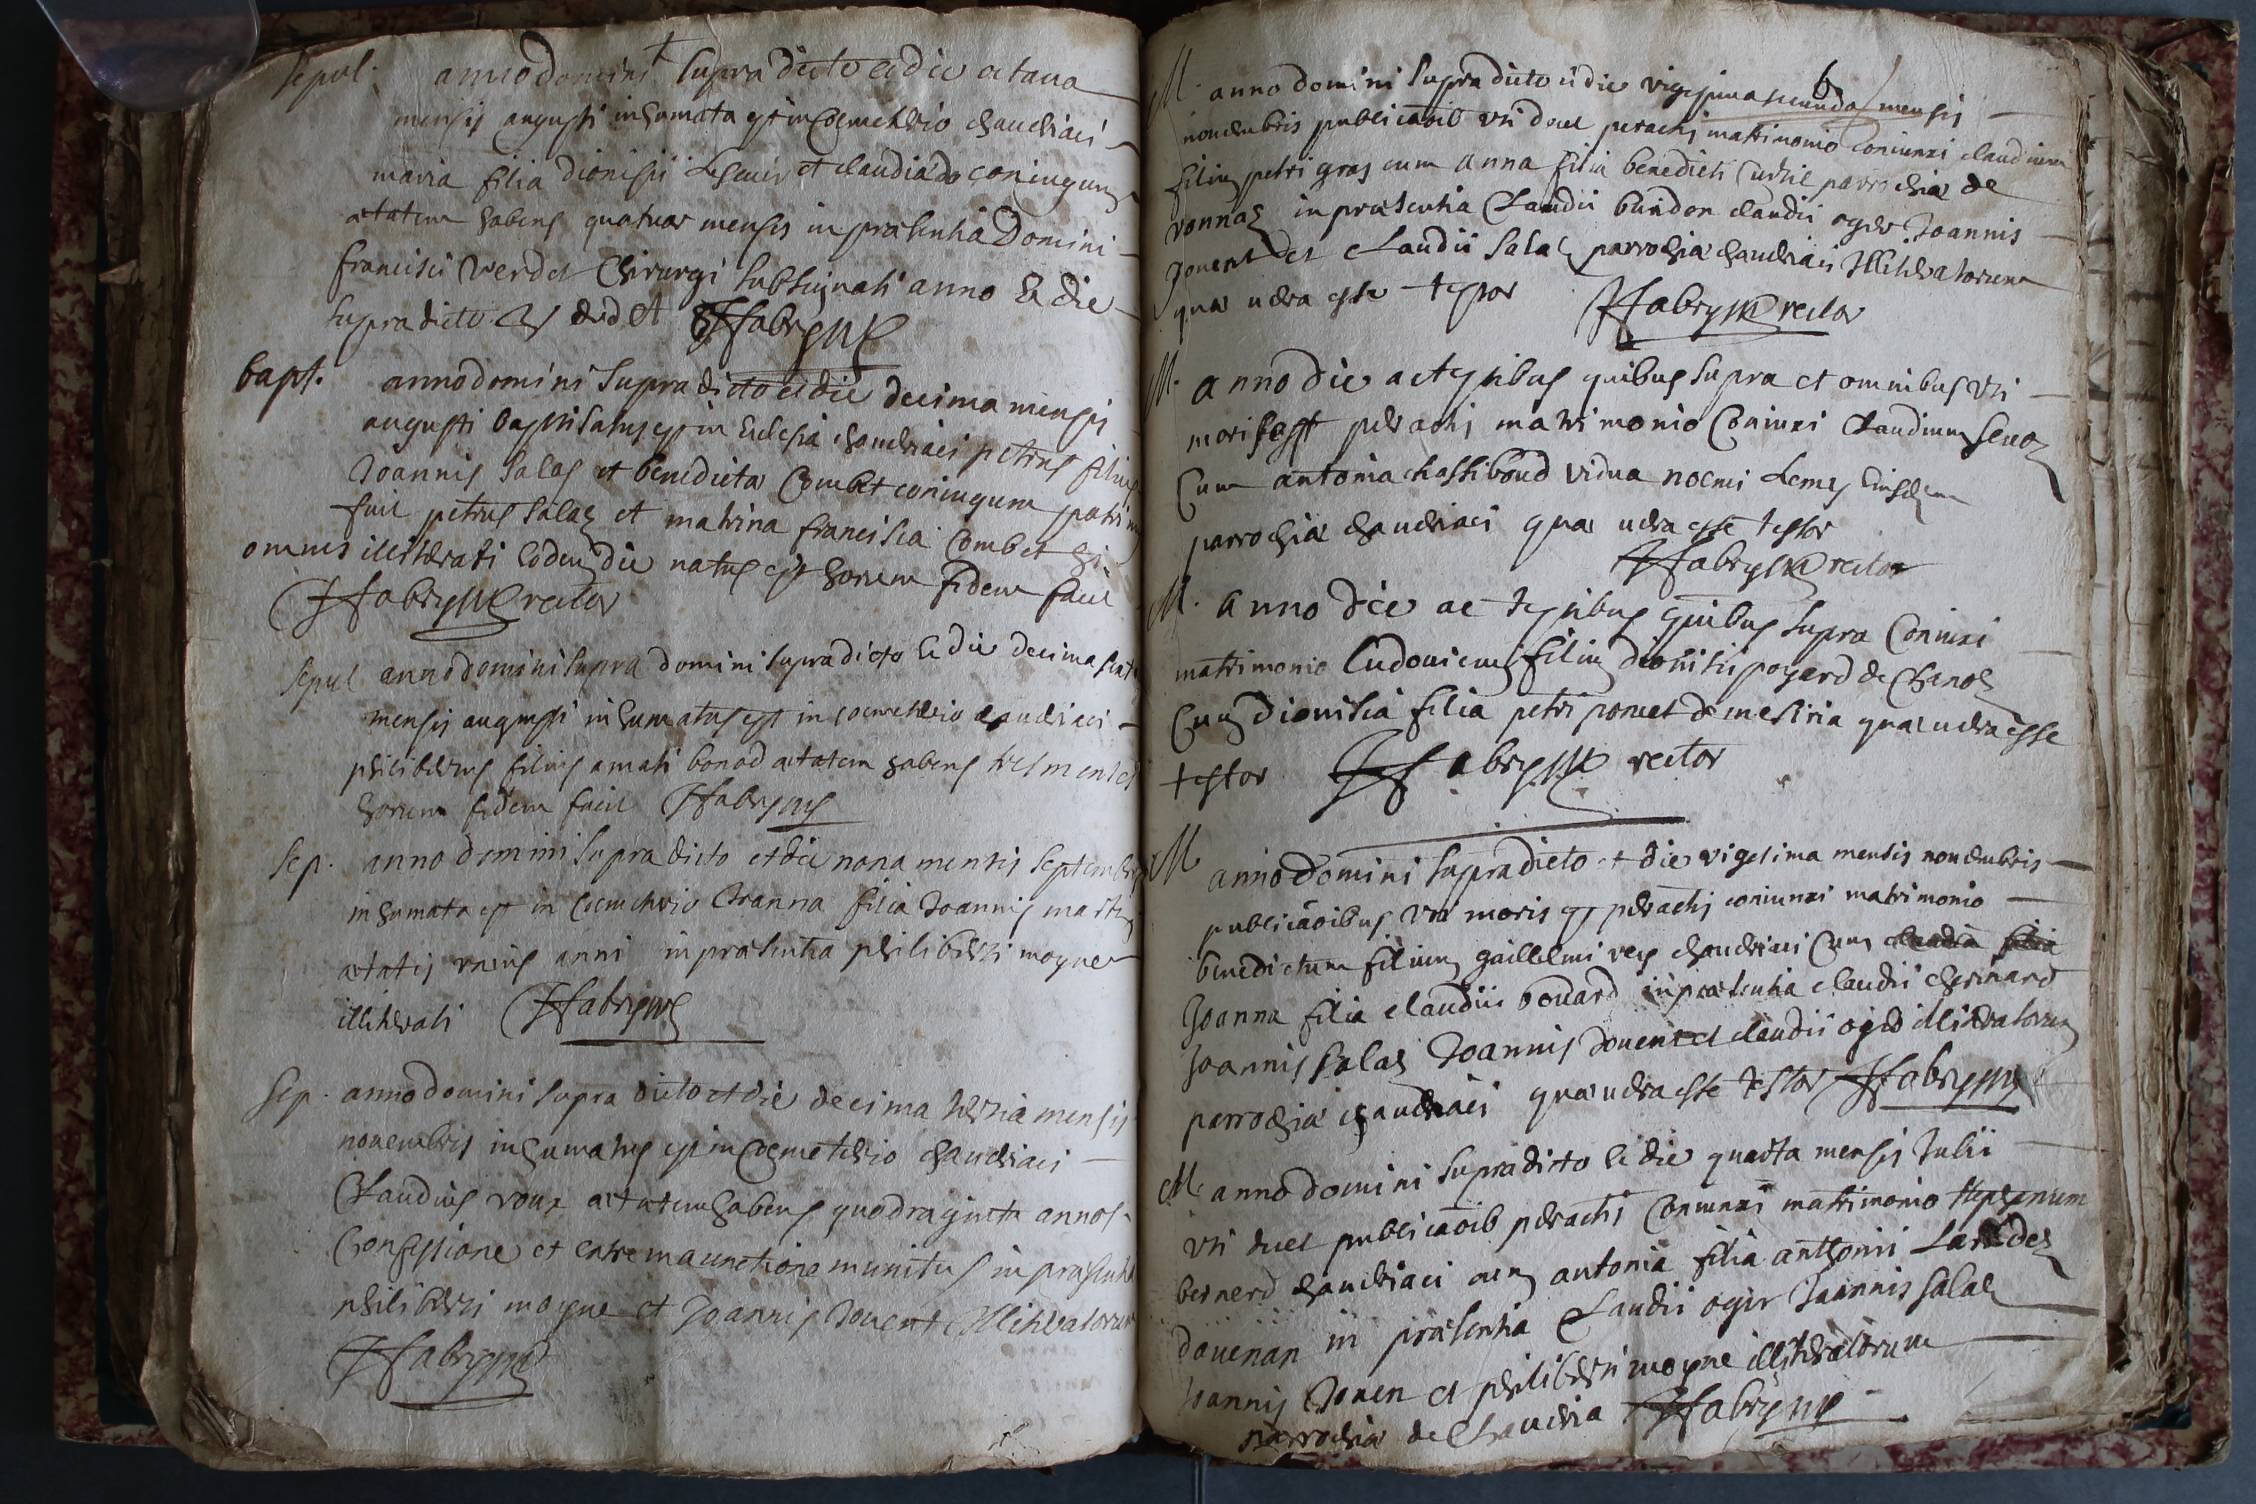 Sepul. anno domini supra dicto et die octava
mensis augusti inhumata est in coemeterio chaveiriaci
maria filia dionisii et claudia coniugum
ætatem habens quatuor mensis in præsentia Domini
francisci verdet chirurgi subsignati anno & die
supra dicto verdet Ffabryus
bapt. anno domini supra dicto et die decima mensis
augusti baptisatus est in Eclesia chaveiriaci petrus filius
Joannis Salaz et benedicta Combet coniugum
fuit petrus Salaz et matrina francisca Combet
omnes illitterati Eodem die natus est horum fidem facit
Ffabryus rector
Sepul anno domini supra domini supra dicto & die decima
mensis augusti inhumatus est in coemeterio chaveiriaci
philibertus filius amati bonod ætatem habens tres menses
horum fidem facit Ffabryus
Sep. anno domini supra dicto et die nona mensis Septembris
inhumata est in Coemeterio Joanna filia Joannis
ætatis unius anni in præsentia philiberti moyne
illitterati Ffabryus
Sep. anno domini supra dicto et die decima tertia mensis
novembris inhumatus est in Coemeterio chaveiriaci
Claudius roux ætatem habens quadraginta annos
Confessione et extrema unctione munitus in præsentia
philiberti moyne et Joannis Jouent illitteratorum
Ffabryus
6
M. anno domini supra dicto et die vigesima secunda mensis
novembris publicaoib uti decet peractis matrimonio coniunxi claudium
filium petri gras cum anna filia benedicti parrochiæ de
vonnaz in præsentia Claudii buidon claudii ogier Joannis
Jouent et Claudii Salaz parrochiæ chaveiriaci illitteratorum
quæ vera esse testor Ffabryus rector
M. anno die ac testibus quibus supra et omnibus uti
moris est peractis matrimonio Coniunxi Claudium
Cum antonia vidua noemi Eiusdem
parrochiæ chaveiriaci quæ vera esse testor
Ffabryus rector
M. anno die ac testibus quibus supra Coniunxi
matrimonio Ludovicum filium dionisii de Chanoz
Cum dionisia filia petri de mesiria quæ vera esse
testor Ffabryus rector
M anno domini supra dicto et die vigesima mensis novembris
publicaoibus uti moris est peractis coniunxi matrimonio
benedictum filium guillelmi chaveiriaci Cum claudia filia
Joanna filia claudii bouard in præsentia claudii
Joannis Salaz Joannis Jouent et claudii ogier illitteratorum
parrochiæ chaveiriaci quæ vera esse testor Ffabryus
M. anno domini supra dicto & die quarta mensis Julii
uti decet publicaoib peractis Coniunxi matrimonio stephanum
bernerd chaveiriaci cum antonia filia anthonii
in præsentia Claudii ogier Joannis Salaz
Joannis Jouen et philiberti moyne illitteratorum
parrochiæ de Chaveiria Ffabryus